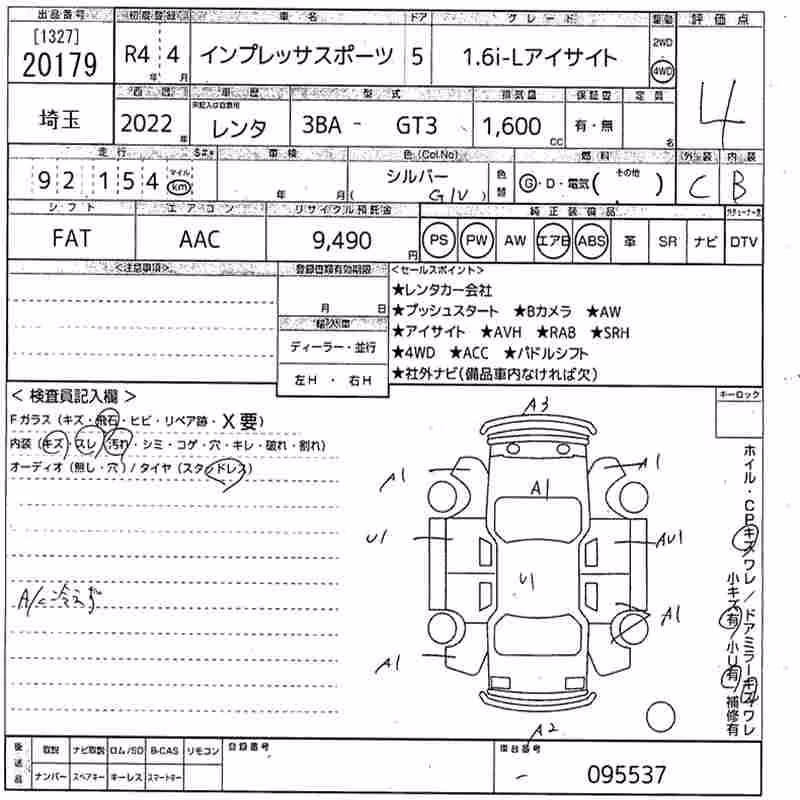 出品番号 初度登録 車名 ドア グレード 駆動 評価点
[1327] 20179 R4 年 4 月 インプレッサスポーツ 5 1.6i-Lアイサイト 2WD 4WD 4
西暦 車歴 型式 排気量 保証書 定員
埼玉 2022 年 未記入は自家用 レンタ 3BA - GT3 1,600 CC 有・無 名
走行 車検 色(Col.No) 燃料 外装 内装
92154 マイル km 年 月 シルバー G1V 色替 G・D・電気( その他 ) C B
シフト エアコン リサイクル預託金 純正装備品
FAT AAC 9,490 円 PS PW AW エアB ABS 革 SR ナビ DTV
<注意事項> 登録書類有効期限 <セールスポイント>
月 日
★レンタカー会社
★プッシュスタート ★Bカメラ ★AW
輸入車 ★アイサイト ★AVH ★RAB ★SRH
ディーラー・並行 ★4WD ★ACC ★パドルシフト
左H ・ 右H ★社外ナビ(備品車内なければ欠)
<検査員記入欄> キーロック
Fガラス(キズ・飛石・ヒビ・リペア跡・X要)
内装(キズ・スレ・汚れ・シミ・コゲ・穴・キレ・破れ・割れ)
オーディオ(無し・穴)/タイヤ(スタッドレス)
A3
A1 A1 A1
U1 AU1
U1
A1
A1
A2
A/C冷えず
ホイル・CPキズワレ/ドアミラーキズワレ
小キズ有/小U有/補修有
後送品 取説 ナビ取説 ロム/SD B-CAS リモコン 登録番号 車台番号
ナンバー スペアキー キーレス スマートキー - 095537